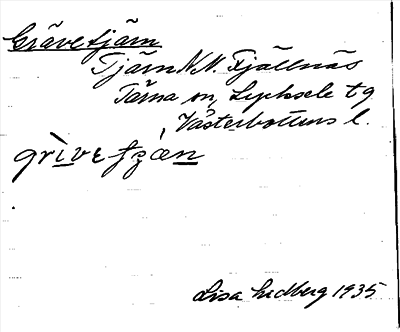 Grävetjärn
Tjärn N.N. Fjällnäs
Tärna sn, Lycksele tg
Västerbottens l.
Lisa Lidberg 1935